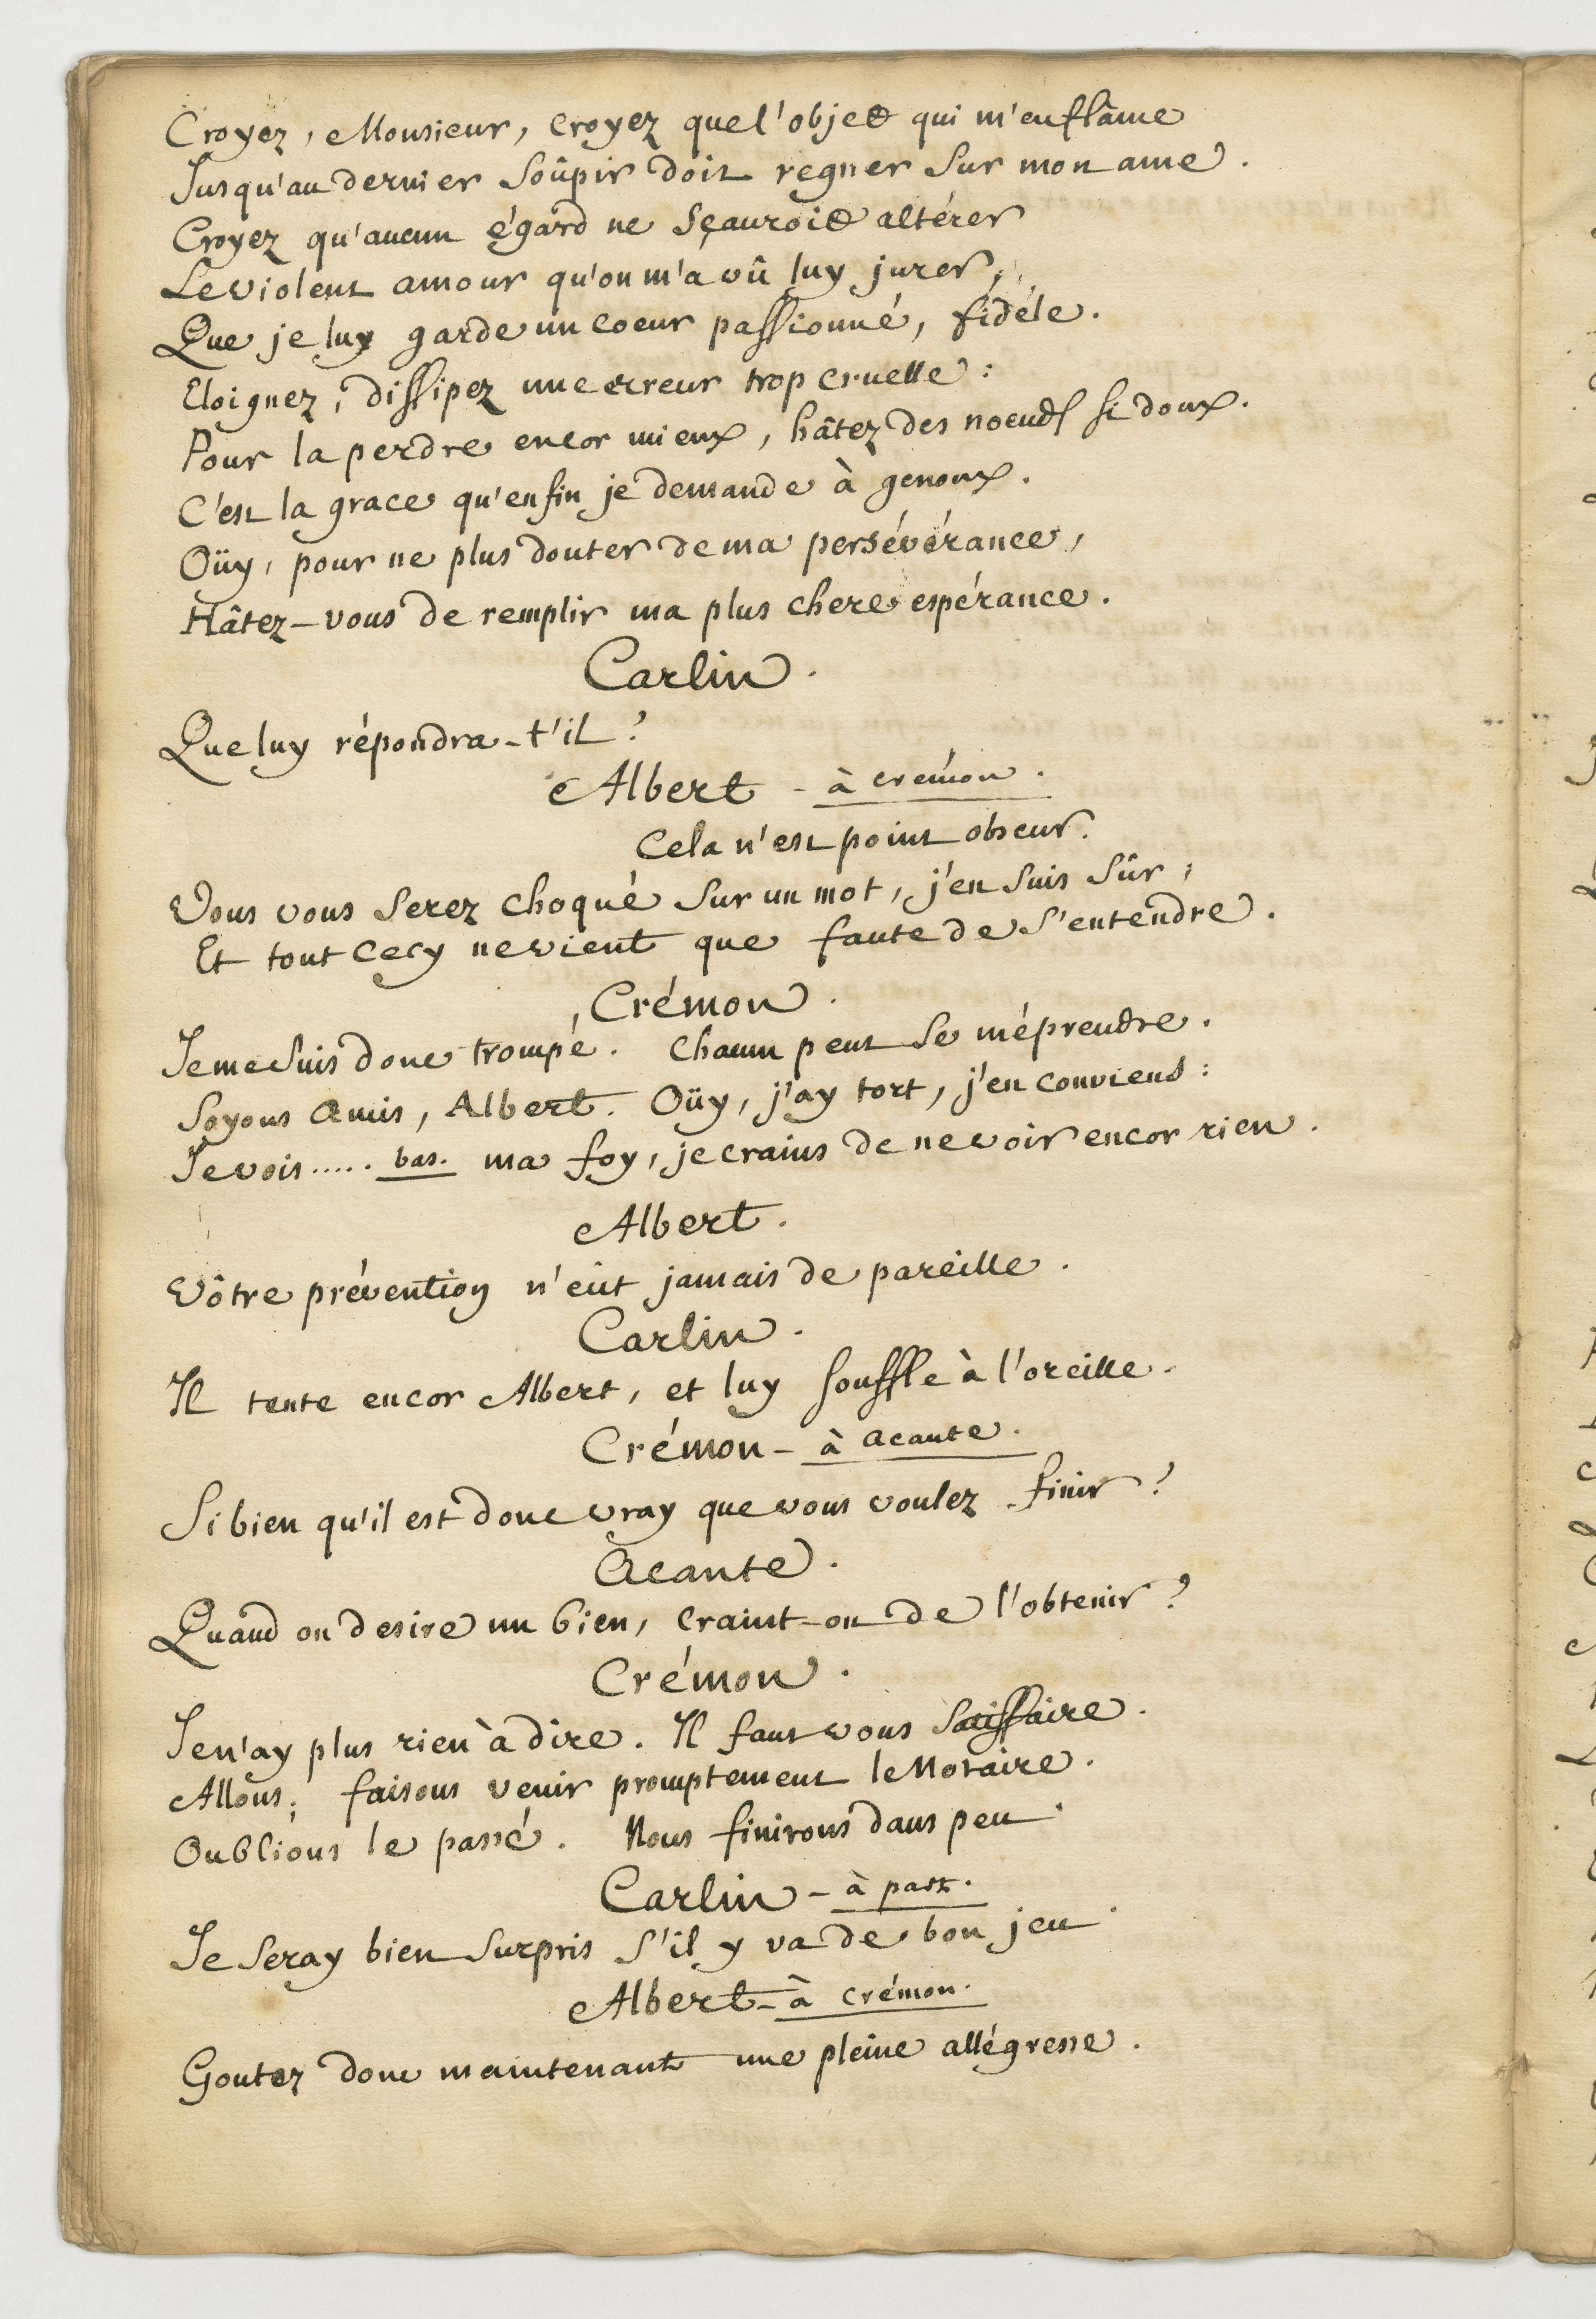 Croyez, Monsieur, croyez que l'objet qui m'enflâme
Jusqu'au dernier soûpir doit regner sur mon ame.
Croyez qu'aucun égard ne sçauroit altérer
Le violent amour qu'on m'a vû luy jurer,
Que je luy garde un coeur passionné, fidéle.
Eloignez, dissipez une erreur trop cruelle:
Pour la perdre encor mieux, hâtez des noeuds si doux.
C'est la grace qu'enfin je demande à genoux.
Oüy, pour ne plus douter de ma persévérance,
Hâtez-vous de remplir ma plus chere espérance.
Carlin.
Que luy répondra-t'il?
Albert - à crémon.
Cela n'est point obscur.
Vous vous serez choqué sur un mot, j'en suis sûr;
Et tout cecy ne vient que faute de s'entendre.
Crémon.
Je me suis donc trompé. Chacun peut se méprendre.
Soyons amis, Albert. Oüy, j'ay tort, j'en conviens:
Je vois..... bas. ma foy, je crains de ne voir encor rien.
Albert.
Vôtre prévention n'eût jamais de pareille.
Carlin.
Il tente encor Albert, et luy souffle à l'oreille.
Crémon - à acante.
Si bien qu'il est donc vray que vous voulez finir?
Acante.
Quand on desire un bien, craint-on de l'obtenir?
Crémon.
Je n'ay plus rien à dire. Il faut vous satisfaire.
Allons; faisons venir promptement le Notaire.
Oublions le passé. Nous finirons dans peu.
Carlin - à part.
Je seray bien surpris s'il y va de bon jeu.
Albert - à crémon.
Goutez donc maintenant une pleine allégresse.